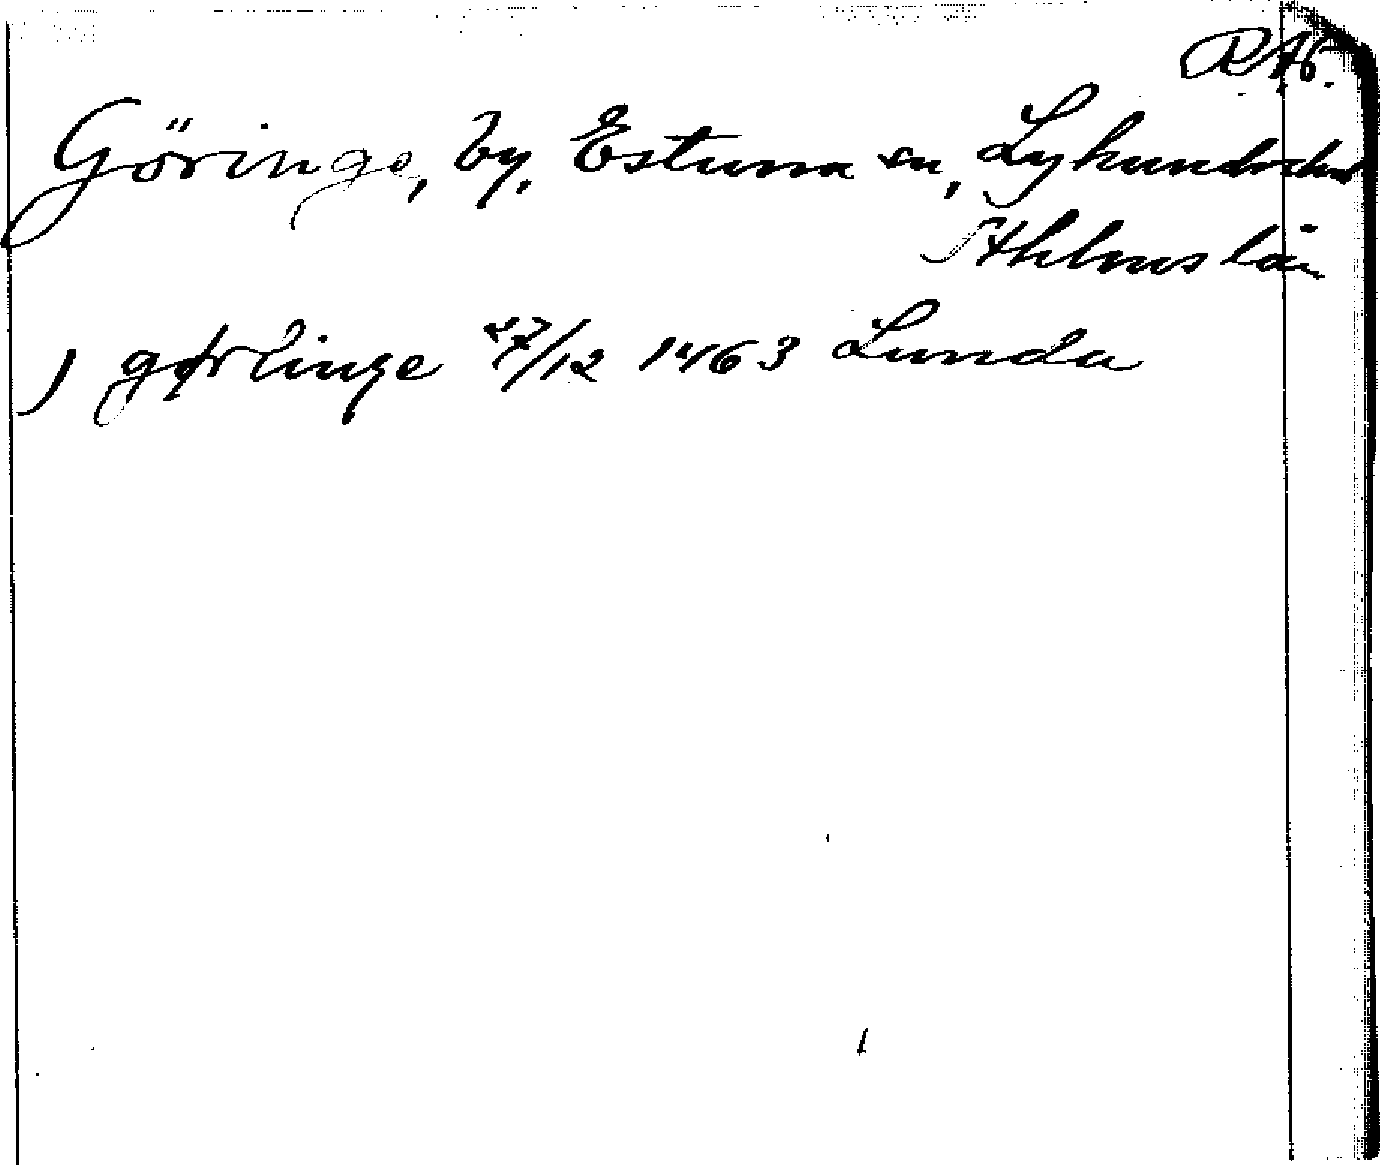 RAp.
Göringe, by, Estuna sn, Lyhundra hd
Sthlms län
) gørlinge 27/12 1463 Lunda